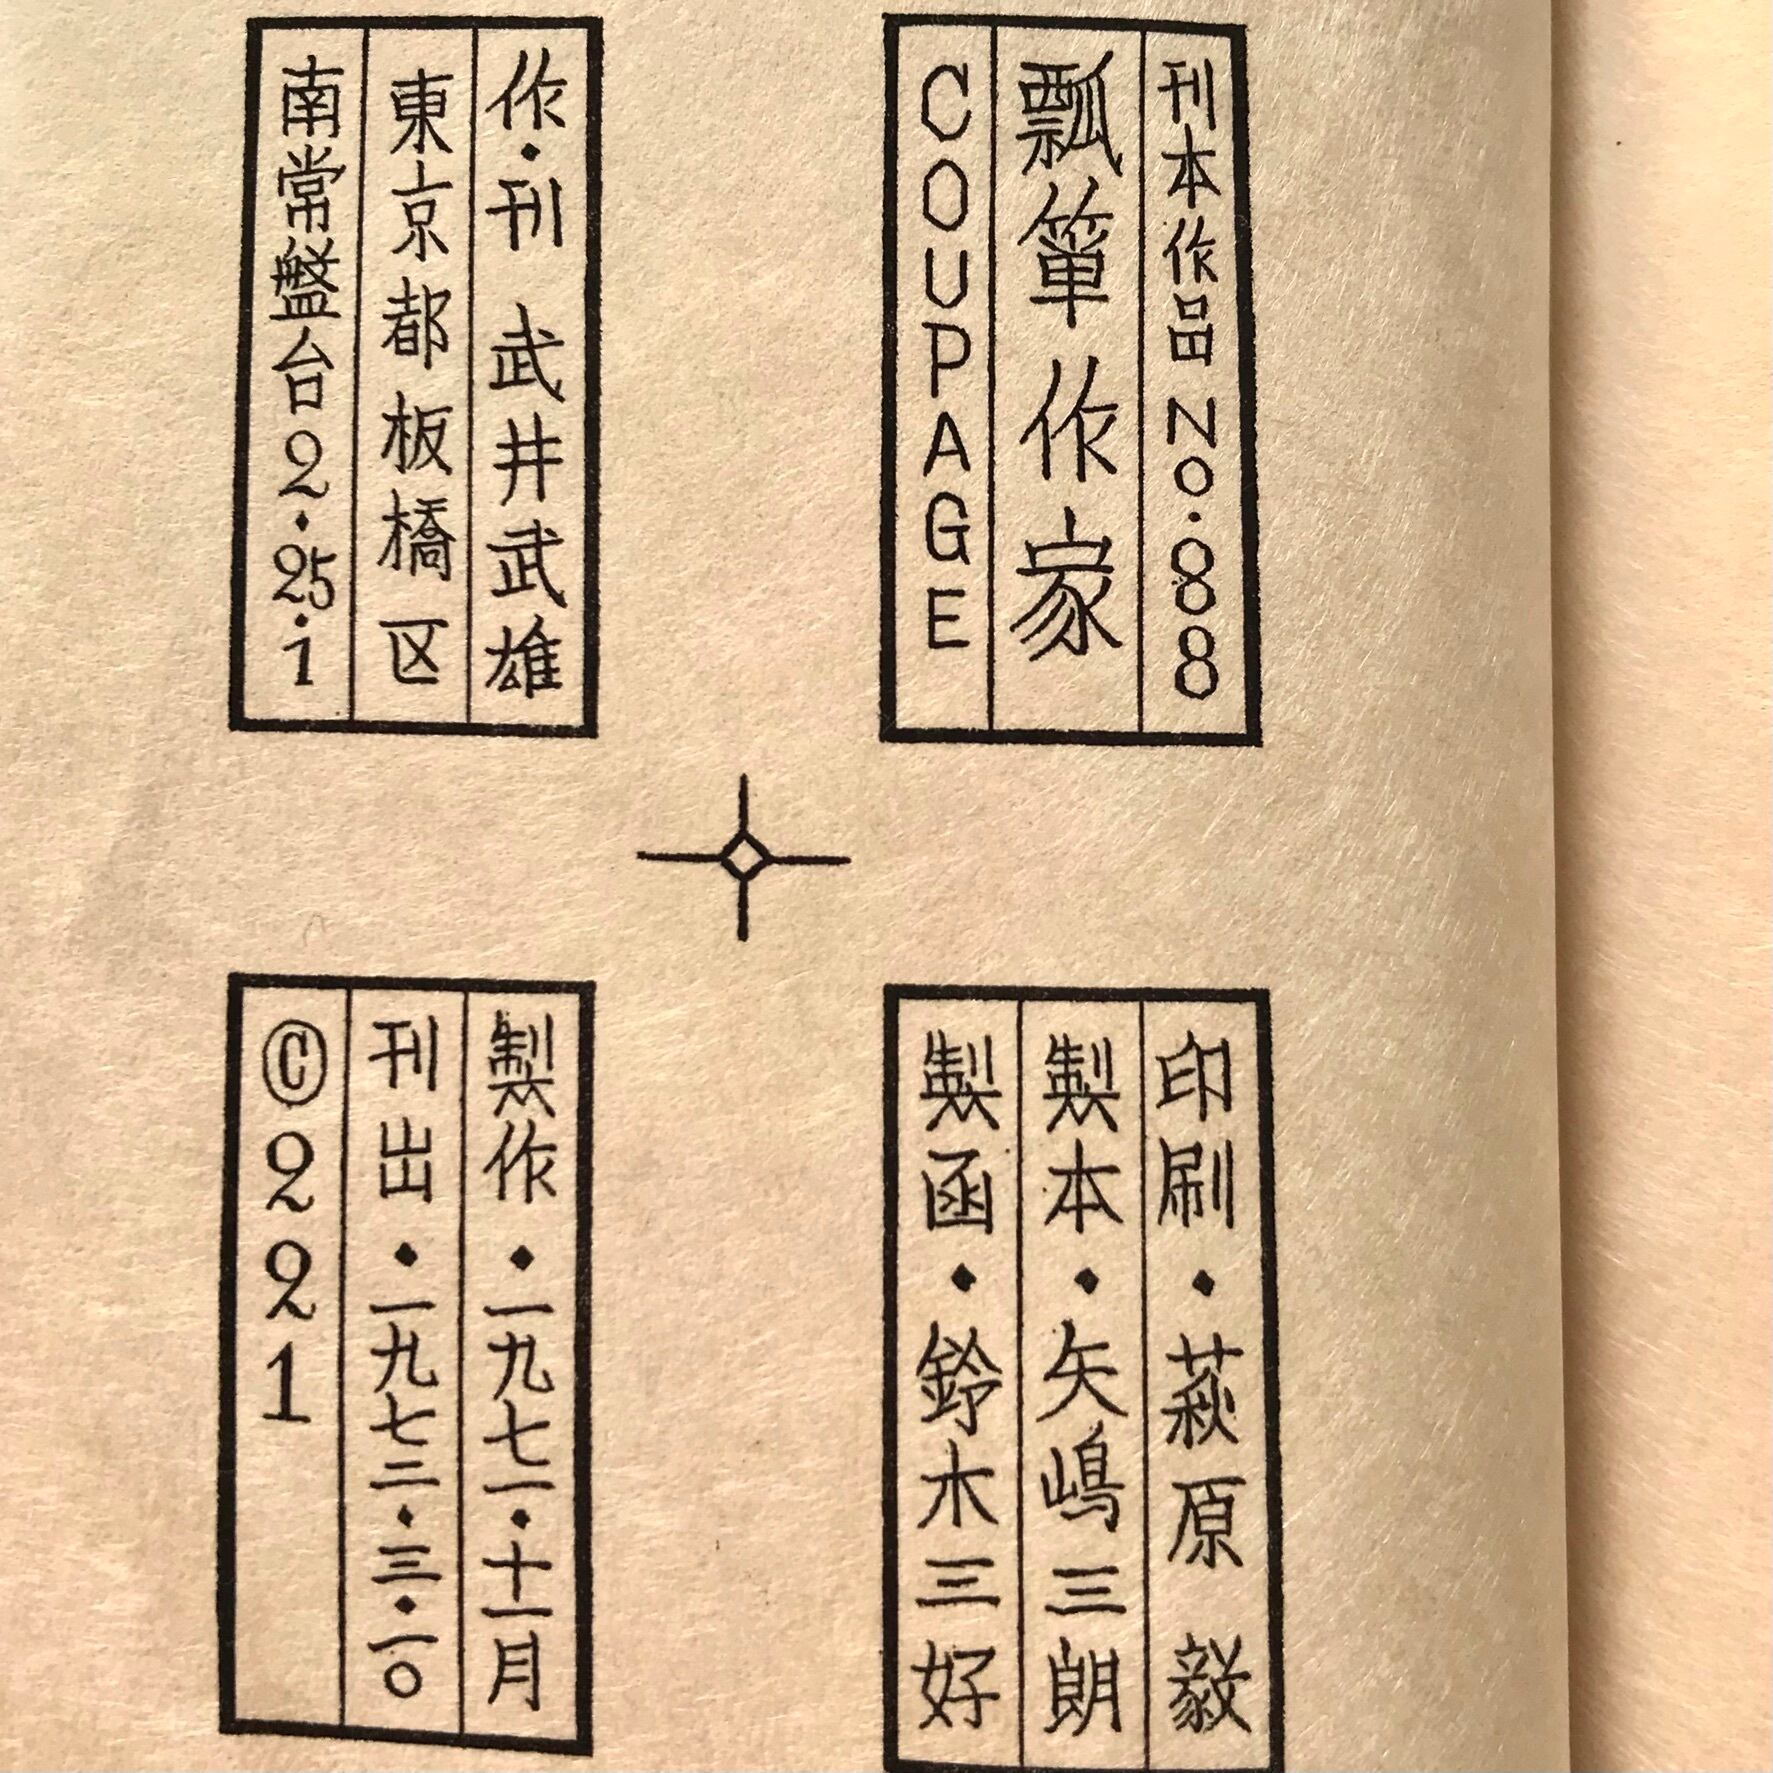 刊本作品No.88
瓢箪作家
COUPAGE
作・刊 武井武雄
東京都板橋区
南常盤台2・25・1
印刷・萩原 毅
製本・矢嶋三朗
製函・鈴木三好
製作・一九七一・十一月
刊出・一九七二・三・一〇
©221